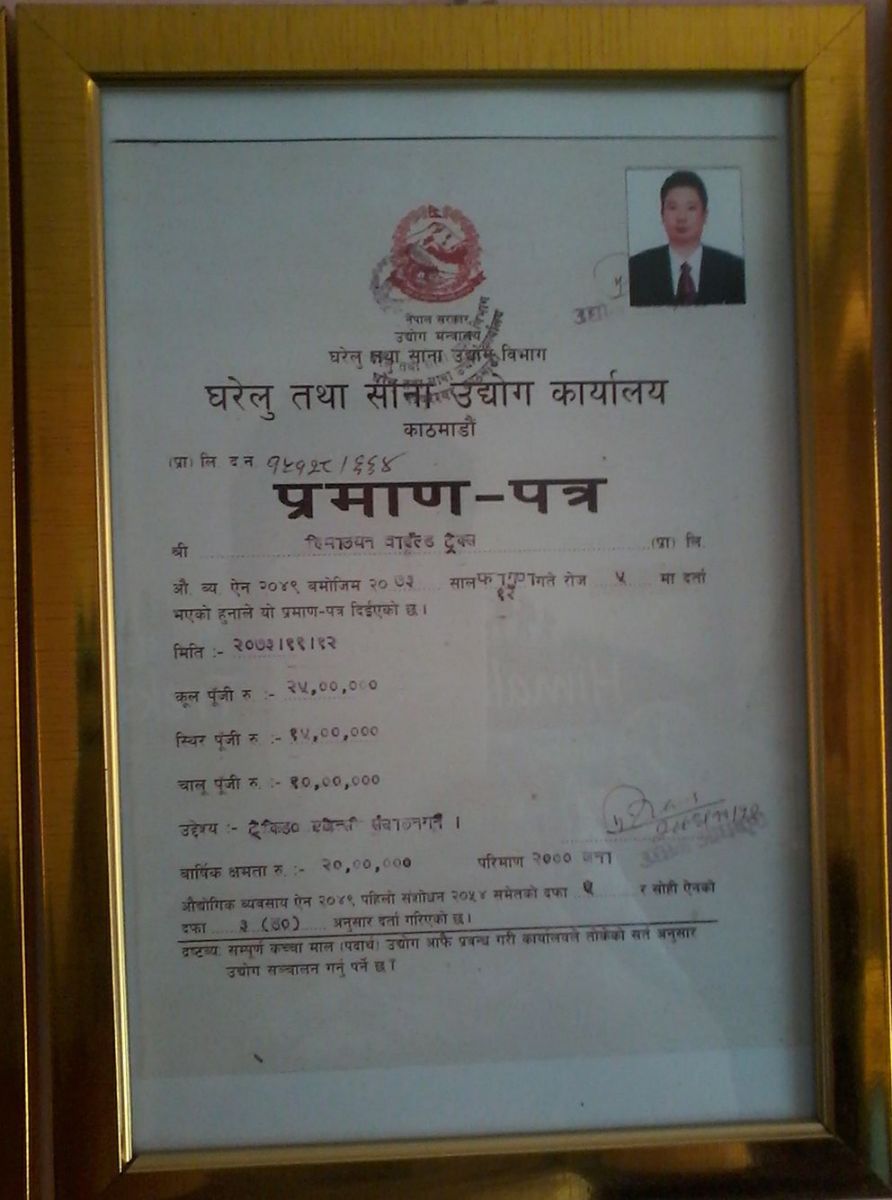 नेपाल सरकार
उद्योग मन्त्रालय
घरेलु तथा साना उद्योग विभाग
घरेलु तथा साना उद्योग कार्यालय
काठमाडौं
(प्रा) लि. द.नं. १५१२८/६६४
प्रमाण-पत्र
श्री हिमालयन वाईल्ड ट्रेक्स (प्रा) लि.
औ. ब्य. ऐन २०४९ बमोजिम २० ७३ साल फागुन १२ गते रोज ५ मा दर्ता
भएको हुनाले यो प्रमाण-पत्र दिईएको छ।
मिति :- २०७३।११।१२
कूल पूँजी रु. :- २५,००,०००
स्थिर पूँजी रु. :- १५,००,०००
चालू पूँजी रु. :- १०,००,०००
उद्देश्य :- ट्रेकिङ एजेन्सी संचालनगर्ने ।
बार्षिक क्षमता रु. :- २०,००,००० परिमाण २००० जना
औद्योगिक ब्यवसाय ऐन २०४९ पहिलो संशोधन २०५४ समेतको दफा ५ र सोही ऐनको
दफा ३ (७०) अनुसार दर्ता गरिएको छ।
द्रष्टब्य: सम्पूर्ण कच्चा माल (पदार्थ) उद्योग आफै प्रबन्ध गरी कार्यालयले तोकेको सर्त अनुसार
उद्योग सञ्चालन गर्नु पर्ने छ।